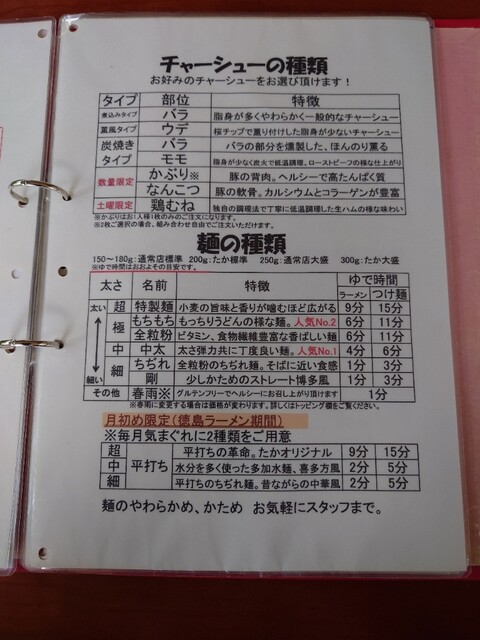 チャーシューの種類
お好みのチャーシューをお選び頂けます!
タイプ 部位 特徴
煮込みタイプ バラ 脂身が多くやわらかく一般的なチャーシュー
薫風タイプ ウデ 桜チップで薫り付けした脂身が少ないチャーシュー
炭焼き バラ バラの部分を燻製した、ほんのり薫る
タイプ モモ 脂身が少なく炭火で低温調理。ローストビーフの様な仕上がり
数量限定 かぶり※ 豚の背肉。ヘルシーで高たんぱく質
なんこつ 豚の軟骨。カルシウムとコラーゲンが豊富
土曜限定 鶏むね 独自の調理法で丁寧に低温調理した生ハムの様な味わい
※かぶりはお1人様1枚のみのご注文になります。
※2枚ご選択の場合、組み合わせ自由でご注文いただけます。
麺の種類
150~180g:通常店標準 200g:たか標準 250g:通常店大盛 300g:たか大盛
※ゆで時間はおおよその目安です。
太さ 名前 特徴 ゆで時間
ラーメン つけ麺
太い 超 特製麺 小麦の旨味と香りが噛むほど広がる 9分 15分
極 もちもち もっちりうどんの様な麺。人気No.2 6分 11分
全粒粉 ビタミン、食物繊維豊富な香ばしい麺 6分 11分
中 中太 太さ弾力共に丁度良い麺 人気No.1 4分 6分
細 ちぢれ 全粒粉のちぢれ麺。そばに近い食感 1分 3分
細い 剛 少しかためのストレート博多風 1分 3分
その他 春雨※ グルテンフリーでヘルシーにお召し上がり頂けます 1分
※春雨に変更する場合は価格が変わります。詳しくはトッピング欄をご覧ください。
月初め限定(徳島ラーメン期間)
※毎月気まぐれに2種類をご用意
超 平打ち 平打ちの革命。たかオリジナル 9分 15分
中 水分を多く使った多加水麺、喜多方風 2分 5分
細 平打ちのちぢれ麺。昔ながらの中華風 2分 5分
麺のやわらかめ、かため お気軽にスタッフまで。